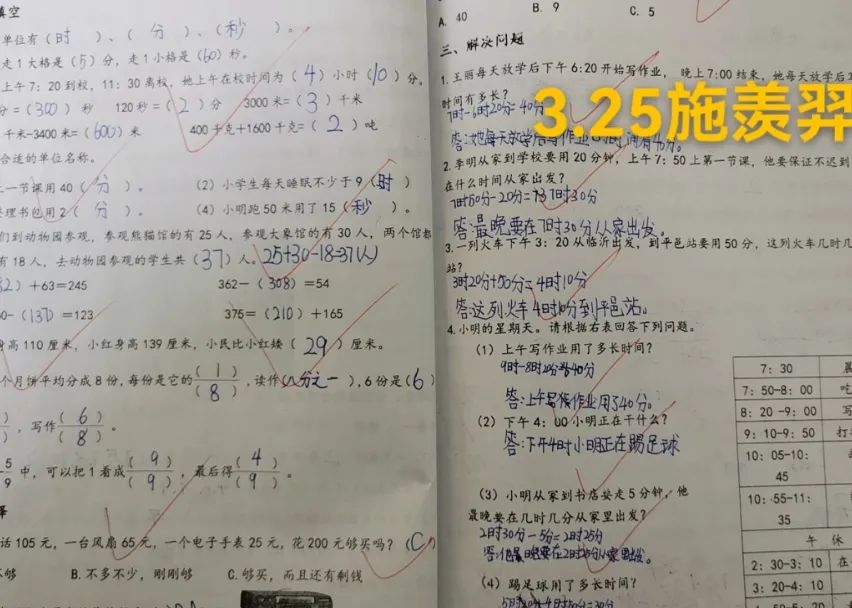 填空
单位有(时)、(分)、(秒)。
走1大格是(5)分,走1小格是(60)秒。
上午7:20到校,11:30离校,她上午在校时间为(4)小时(10)分。
分=(300)秒 120秒=(2)分 3000米=(3)千米
千米-3400米=(600)米 400千克+1600千克=(2)吨
合适的单位名称。
上一节课用40(分)。 (2)小学生每天睡眠不少于9(时)
整理书包用2(分)。 (4)小明跑50米用了15(秒)。
们到动物园参观,参观熊猫馆的有25人,参观大象馆的有30人,两个馆都
有18人,去动物园参观的学生共(37)人。25+30-18=37(人)
82)+63=245 362-(308)=54
0-(137)=123 375=(210)+165
身高110厘米,小红身高139厘米,小民比小红矮(29)厘米。
个月饼平均分成8份,每份是它的(1)/(8),读作(八分之一),6份是(6)
),写作(6)/(8)。
5/9中,可以把1看成(9)/(9),最后得(4)/(9)。
择
话105元,一台风扇65元,一个电子手表25元,花200元够买吗?(C)
不够 B.不多不少,刚刚够 C.够买,而且还有剩钱
A. 40 B. 9 C. 5
三、解决问题
1.王丽每天放学后下午6:20开始写作业,晚上7:00结束,她每天放学后写
时间有多长?
7时-6时20分=40分
3.25施羡羿
答:她每天放学后写作业的时间有40分。
2.李明从家到学校要用20分钟,上午7:50上第一节课,他要保证不迟到
在什么时间从家出发?
7时50分-20分=7时30分
答:最晚要在7时30分从家出发。
3.一列火车下午3:20从临沂出发,到平邑站要用50分,这列火车几时几
站?
3时20分+50分=4时10分
答:这列火车4时10分到平邑站。
4.小明的星期天。请根据右表回答下列问题。
(1)上午写作业用了多长时间?
9时-8时20分=40分
答:上午写作业用了40分。
(2)下午4:00小明正在干什么?
答:下午4时小明正在踢足球
(3)小明从家到书店要走5分钟,他
最晚要在几时几分从家里出发?
2时30分-5分=2时25分
答:他最晚要在2时25分从家里出发。
(4)踢足球用了多长时间?
7:30
7:50-8:00 吃
8:20-9:00 写
9:10-9:50 打
10:05-10:45
10:55-11:35
午 休
2:30-3:10 在
3:20-4:10